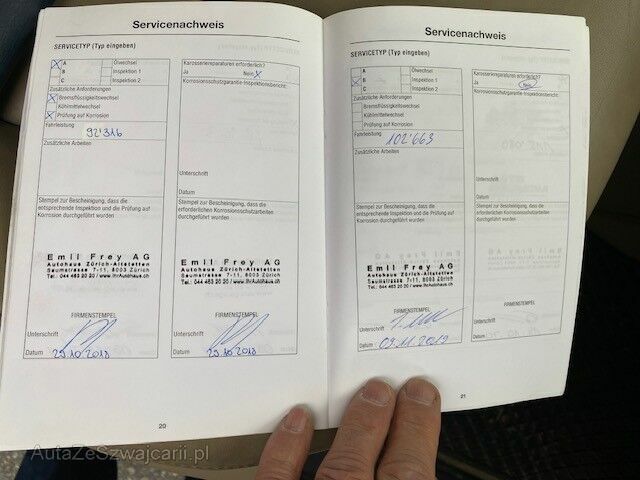 Servicenachweis
SERVICETYP (Typ eingeben)
X A Ölwechsel
B Inspektion 1
C Inspektion 2
Zusätzliche Anforderungen
X Bremsflüssigkeitswechsel
Kühlmittelwechsel
X Prüfung auf Korrosion
Fahrleistung
92'316
Zusätzliche Arbeiten
Stempel zur Bescheinigung, dass die
entsprechende Inspektion und die Prüfung auf
Korrosion durchgeführt wurden
Emil Frey AG
Autohaus Zürich-Altstetten
Saumstrasse 7-11, 8003 Zürich
Tel. 044 463 20 20 / www.IhrAutohaus.ch
FIRMENSTEMPEL
Unterschrift
Datum 29.10.2018
Karosseriereparaturen erforderlich?
Ja Nein X
Korrosionsschutzgarantie-Inspektionsbericht:
Unterschrift
Datum
Stempel zur Bescheinigung, dass die
erforderlichen Korrosionsschutzarbeiten
durchgeführt wurden
Emil Frey AG
Autohaus Zürich-Altstetten
Saumstrasse 7-11, 8003 Zürich
Tel. 044 463 20 20 / www.IhrAutohaus.ch
FIRMENSTEMPEL
Unterschrift
Datum 29.10.2018
20
Servicenachweis
SERVICETYP (Typ eingeben)
A Ölwechsel
X B Inspektion 1
C Inspektion 2
Zusätzliche Anforderungen
Bremsflüssigkeitswechsel
Kühlmittelwechsel
Prüfung auf Korrosion
Fahrleistung
102'663
Zusätzliche Arbeiten
Stempel zur Bescheinigung, dass die
entsprechende Inspektion und die Prüfung auf
Korrosion durchgeführt wurden
Emil Frey AG
Autohaus Zürich-Altstetten
Saumstrasse 7-11, 8003 Zürich
Tel. 044 463 20 20 / www.IhrAutohaus.ch
FIRMENSTEMPEL
Unterschrift
Datum 09.11.2019
Karosseriereparaturen erforderlich?
Ja Nein
Korrosionsschutzgarantie-Inspektionsbericht:
Unterschrift
Datum
Stempel zur Bescheinigung, dass die
erforderlichen Korrosionsschutzarbeiten
durchgeführt wurden
FIRMENSTEMPEL
Unterschrift
Datum
21
AutaZeSzwajcarii.pl